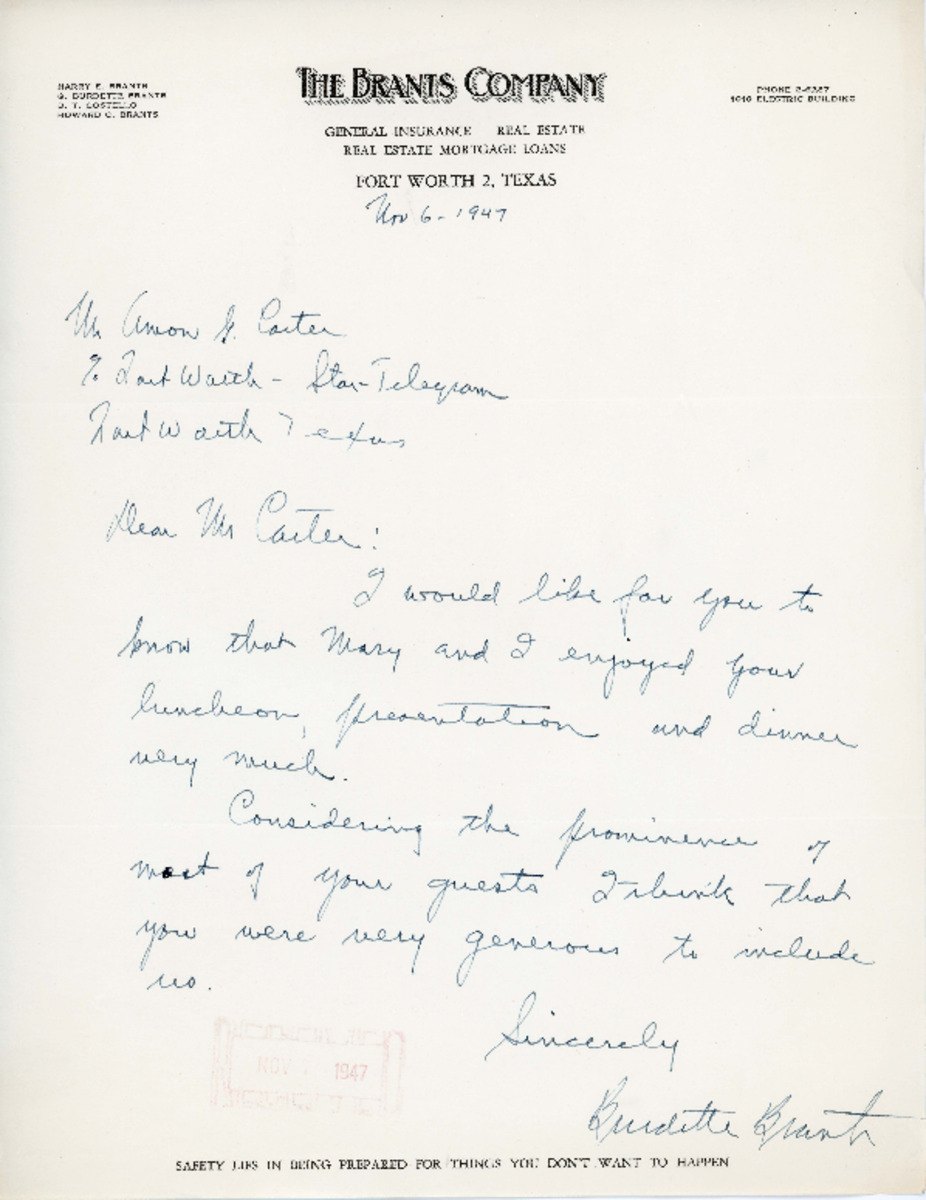 HARRY E. BRANTS
G. BURDETTE BRANTS
D. T. COSTELLO
HOWARD C. BRANTS
THE BRANTS COMPANY
GENERAL INSURANCE REAL ESTATE
REAL ESTATE MORTGAGE LOANS
FORT WORTH 2, TEXAS
PHONE
1010 ELECTRIC BUILDING
Nov 6 - 1947
Mr Amon G. Carter
% Fort Worth - Star-Telegram
Fort Worth Texas
Dear Mr Carter:
I would like for you to
know that Mary and I enjoyed your
luncheon, presentation and dinner
very much.
Considering the prominence of
most of your guests I think that
you were very generous to include
us.
Sincerely
Burdette Brants
NOV 1947
SAFETY LIES IN BEING PREPARED FOR THINGS YOU DON'T WANT TO HAPPEN